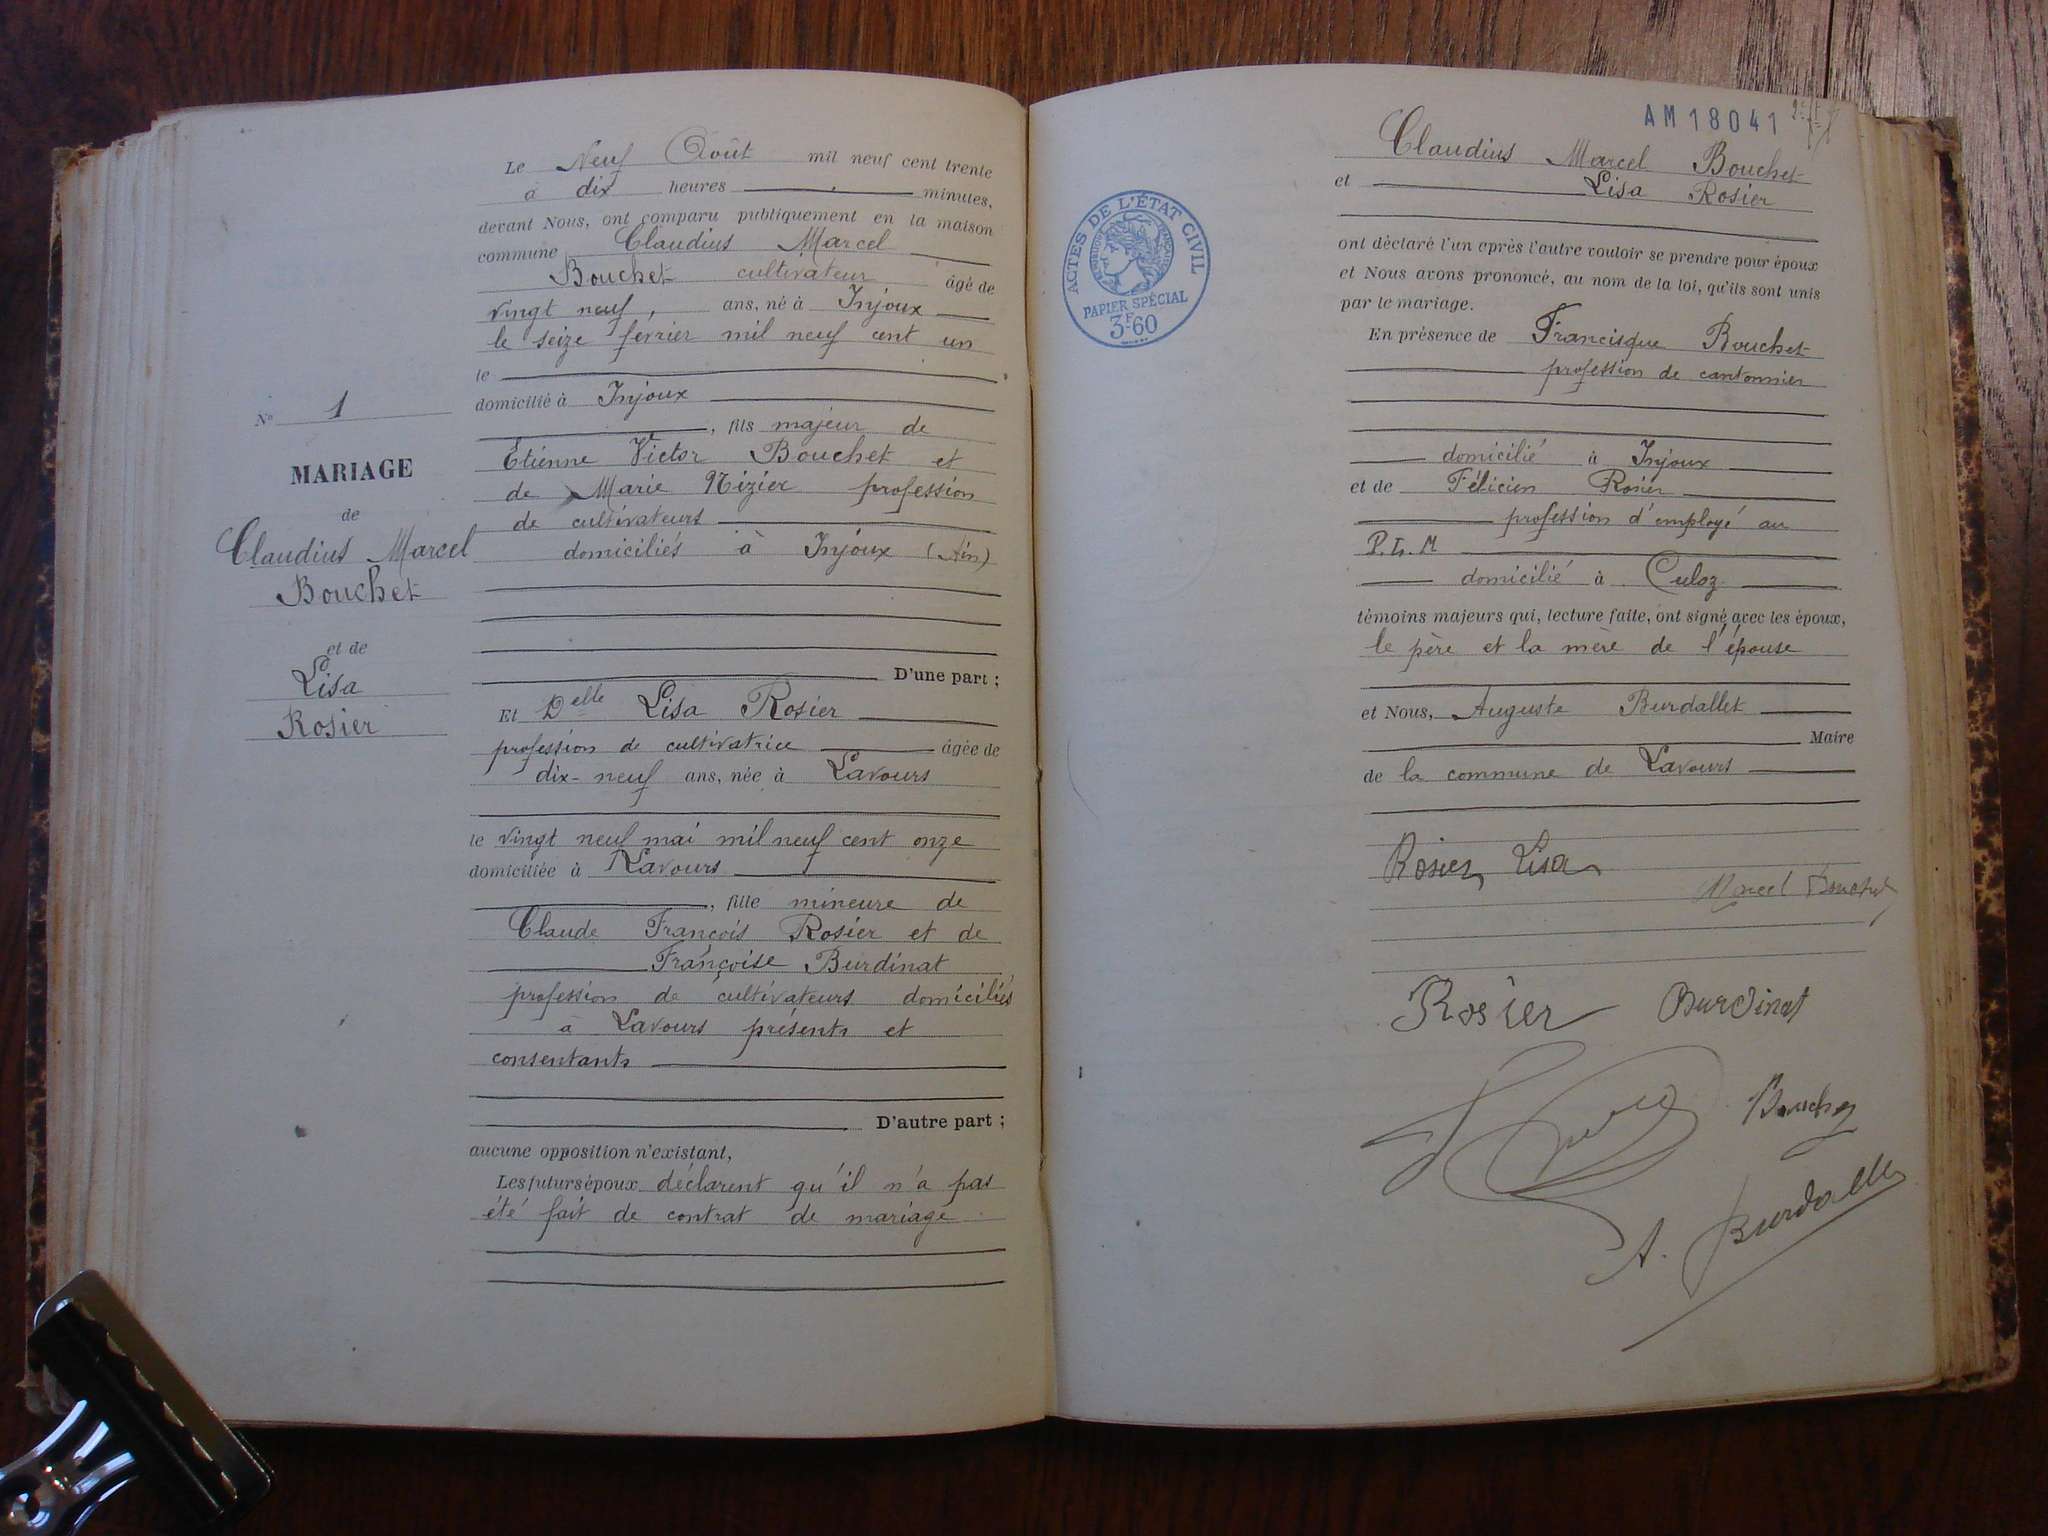 Le Neuf Août mil neuf cent trente
à dix heures minutes,
devant Nous, ont comparu publiquement en la maison
commune Claudius Marcel
Bouchet cultivateur âgé de
vingt neuf, ans, né à Injoux
le seize fevrier mil neuf cent un
le
domicilié à Injoux
, fils majeur de
Etienne Victor Bouchet et
de Marie Nizier profession
de cultivateurs
domiciliés à Injoux (Ain)
D'une part ;
Et Delle Lisa Rosier
profession de cultivatrice âgée de
dix-neuf ans, née à Lavours
le vingt neuf mai mil neuf cent onze
domiciliée à Lavours
, fille mineure de
Claude François Rosier et de
Françoise Burdinat
profession de cultivateurs domiciliés
à Lavours présents et
consentants
D'autre part ;
aucune opposition n'existant,
Les futurs époux déclarent qu'il n'a pas
été fait de contrat de mariage
No 1
MARIAGE
de
Claudius Marcel
Bouchet
et de
Lisa
Rosier
AM18041
Claudius Marcel Bouchet
et Lisa Rosier
ACTES DE L'ÉTAT CIVIL
RÉPUBLIQUE FRANÇAISE
PAPIER SPÉCIAL
3F60
ont déclaré l'un après l'autre vouloir se prendre pour époux
et Nous avons prononcé, au nom de la loi, qu'ils sont unis
par le mariage.
En présence de Francisque Bouchet
profession de cantonnier
domicilié à Injoux
et de Félicien Rosier
profession d'employé au
P.L.M
domicilié à Culoz
témoins majeurs qui, lecture faite, ont signé avec les époux,
le père et la mère de l'épouse
et Nous, Auguste Burdallet
Maire
de la commune de Lavours
Rosier Lisa
Marcel Bouchet
Rosier Burdinat
Bouchet
A. Burdallet